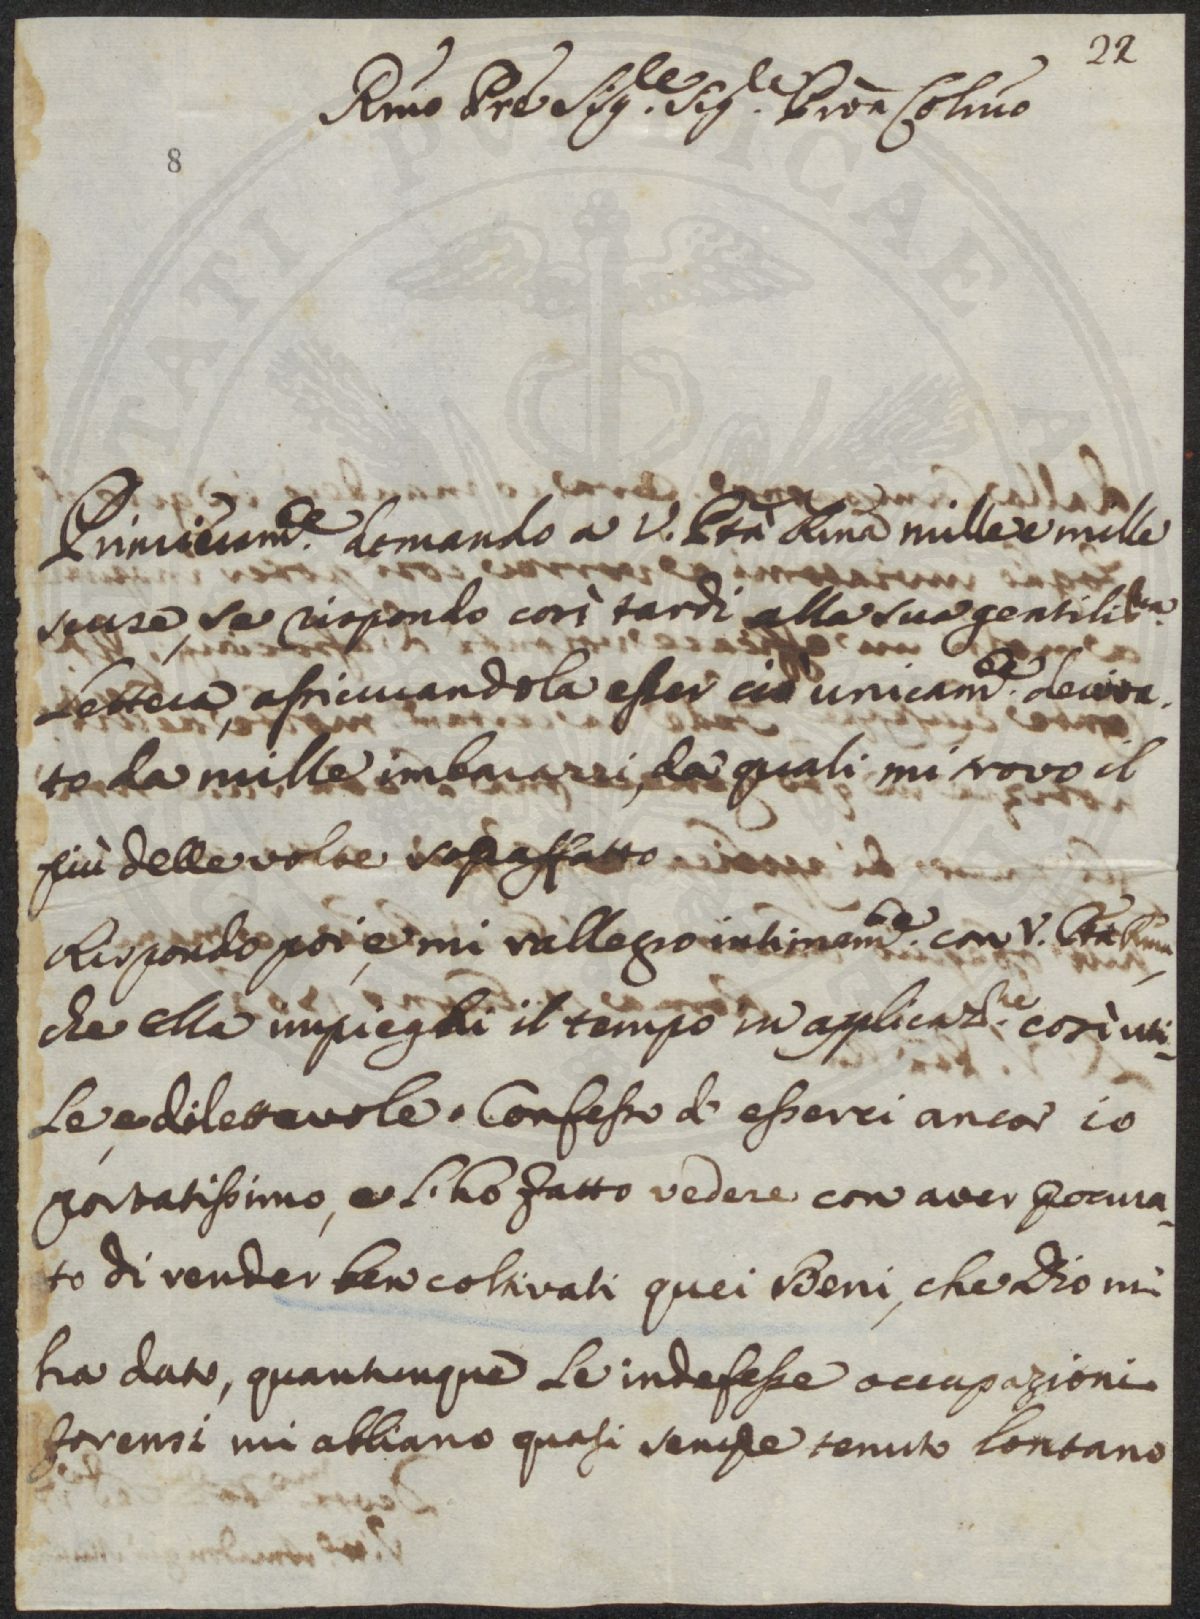 22
Rmo Pre Sig.le Sig.le Pron Colmo
8
Primieram.te domando a V. Pta Rma mille e mille
scuse, se rispondo così tardi alla sua gentilis.ma
Lettera, assicurandola esser ciò unicam.te deriva-
to da mille imbarazzi, da quali mi trovo il
più delle volte sopraffatto
Rispondo poi, e mi rallegro intimam.te con V. Pta Rma,
che ella impieghi il tempo in applicaz.ne così uti-
le, e dilettevole. Confesso d' esserci ancor io
portatissimo, e l'ho fatto vedere con aver procura-
to di render ben coltivati quei Beni, che Dio mi
ha dato, quantunque le indefesse occupazioni
forensi mi abbiano quasi sempre tenuto lontano